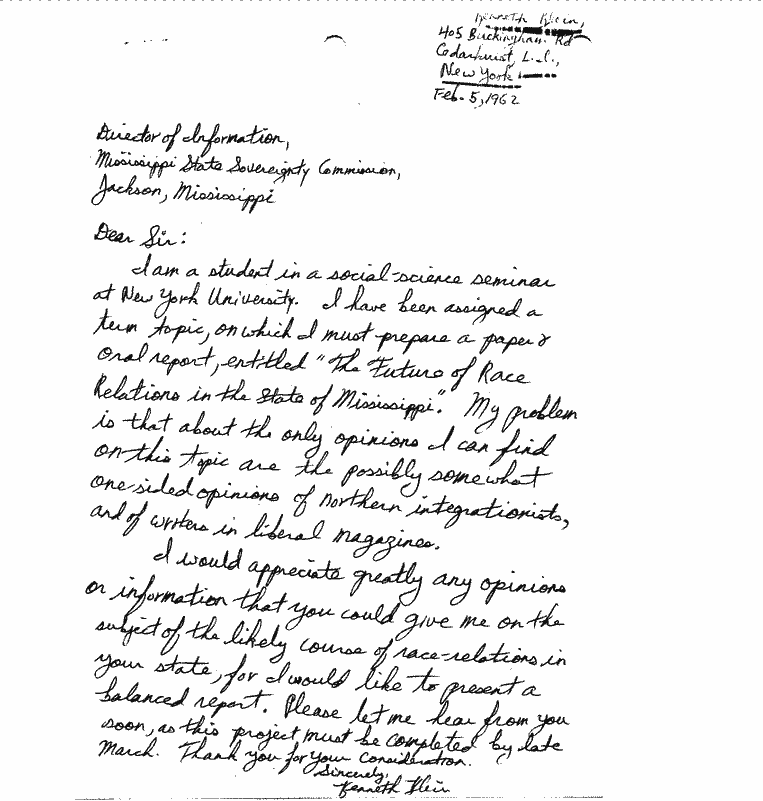 Kenneth Klein,
405 Buckingham Rd
Cedarhurst, L.I.,
New York
Feb. 5, 1962
Director of Information,
Mississippi State Sovereignty Commission,
Jackson, Mississippi
Dear Sir:
I am a student in a social-science seminar
at New York University. I have been assigned a
term topic, on which I must prepare a paper &
oral report, entitled "The Future of Race
Relations in the State of Mississippi". My problem
is that about the only opinions I can find
on this topic are the possibly somewhat
one-sided opinions of northern integrationists,
and of writers in liberal magazines.
I would appreciate greatly any opinions
or information that you could give me on the
subject of the likely course of race-relations in
your state, for I would like to present a
balanced report. Please let me hear from you
soon, as this project must be completed by late
March. Thank you for your consideration.
Sincerely,
Kenneth Klein